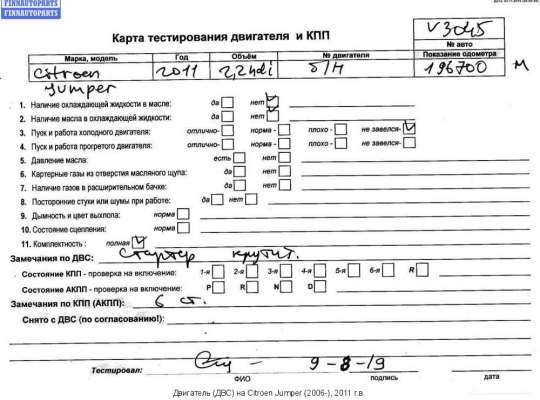 FINNAUTOPARTS
FINNAUTOPARTS
Карта тестирования двигателя и КПП
V3045
№ авто
Марка, модель Год Объём № двигателя Показание одометра
Citroen Jumper 2011 2,2 hdi б/н 196700 М
1. Наличие охлаждающей жидкости в масле: да нет
2. Наличие масла в охлаждающей жидкости: да нет
3. Пуск и работа холодного двигателя: отлично- норма - плохо - не завелся-
4. Пуск и работа прогретого двигателя: отлично- норма - плохо - не завелся-
5. Давление масла: есть нет
6. Картерные газы из отверстия масляного щупа: да нет
7. Наличие газов в расширительном бачке: да нет
8. Посторонние стуки или шумы при работе: да нет
9. Дымность и цвет выхлопа: норма
10. Состояние сцепления: норма
11. Комплектность : полная
Замечания по ДВС: стартер крутит.
Состояние КПП - проверка на включение: 1-я 2-я 3-я 4-я 5-я 6-я R
Состояние АКПП - проверка на включение: P R N D
Замечания по КПП (АКПП): 6 ст.
Снято с ДВС (по согласованию!):
Тестировал: 9-8-19
ФИО подпись дата
Двигатель (ДВС) на Citroen Jumper (2006-), 2011 г.в.